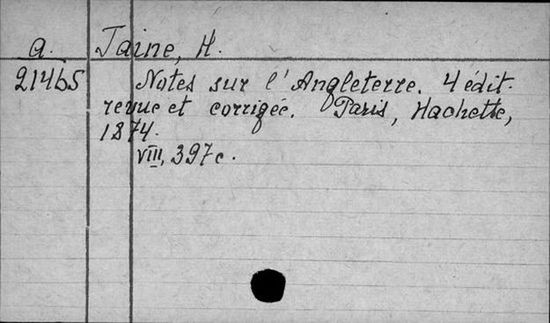 a. Taine, H.
21465 Notes sur l'Angleterre. 4 édit.
revue et corrigée. Paris, Hachette,
1874.
VIII, 397 c.